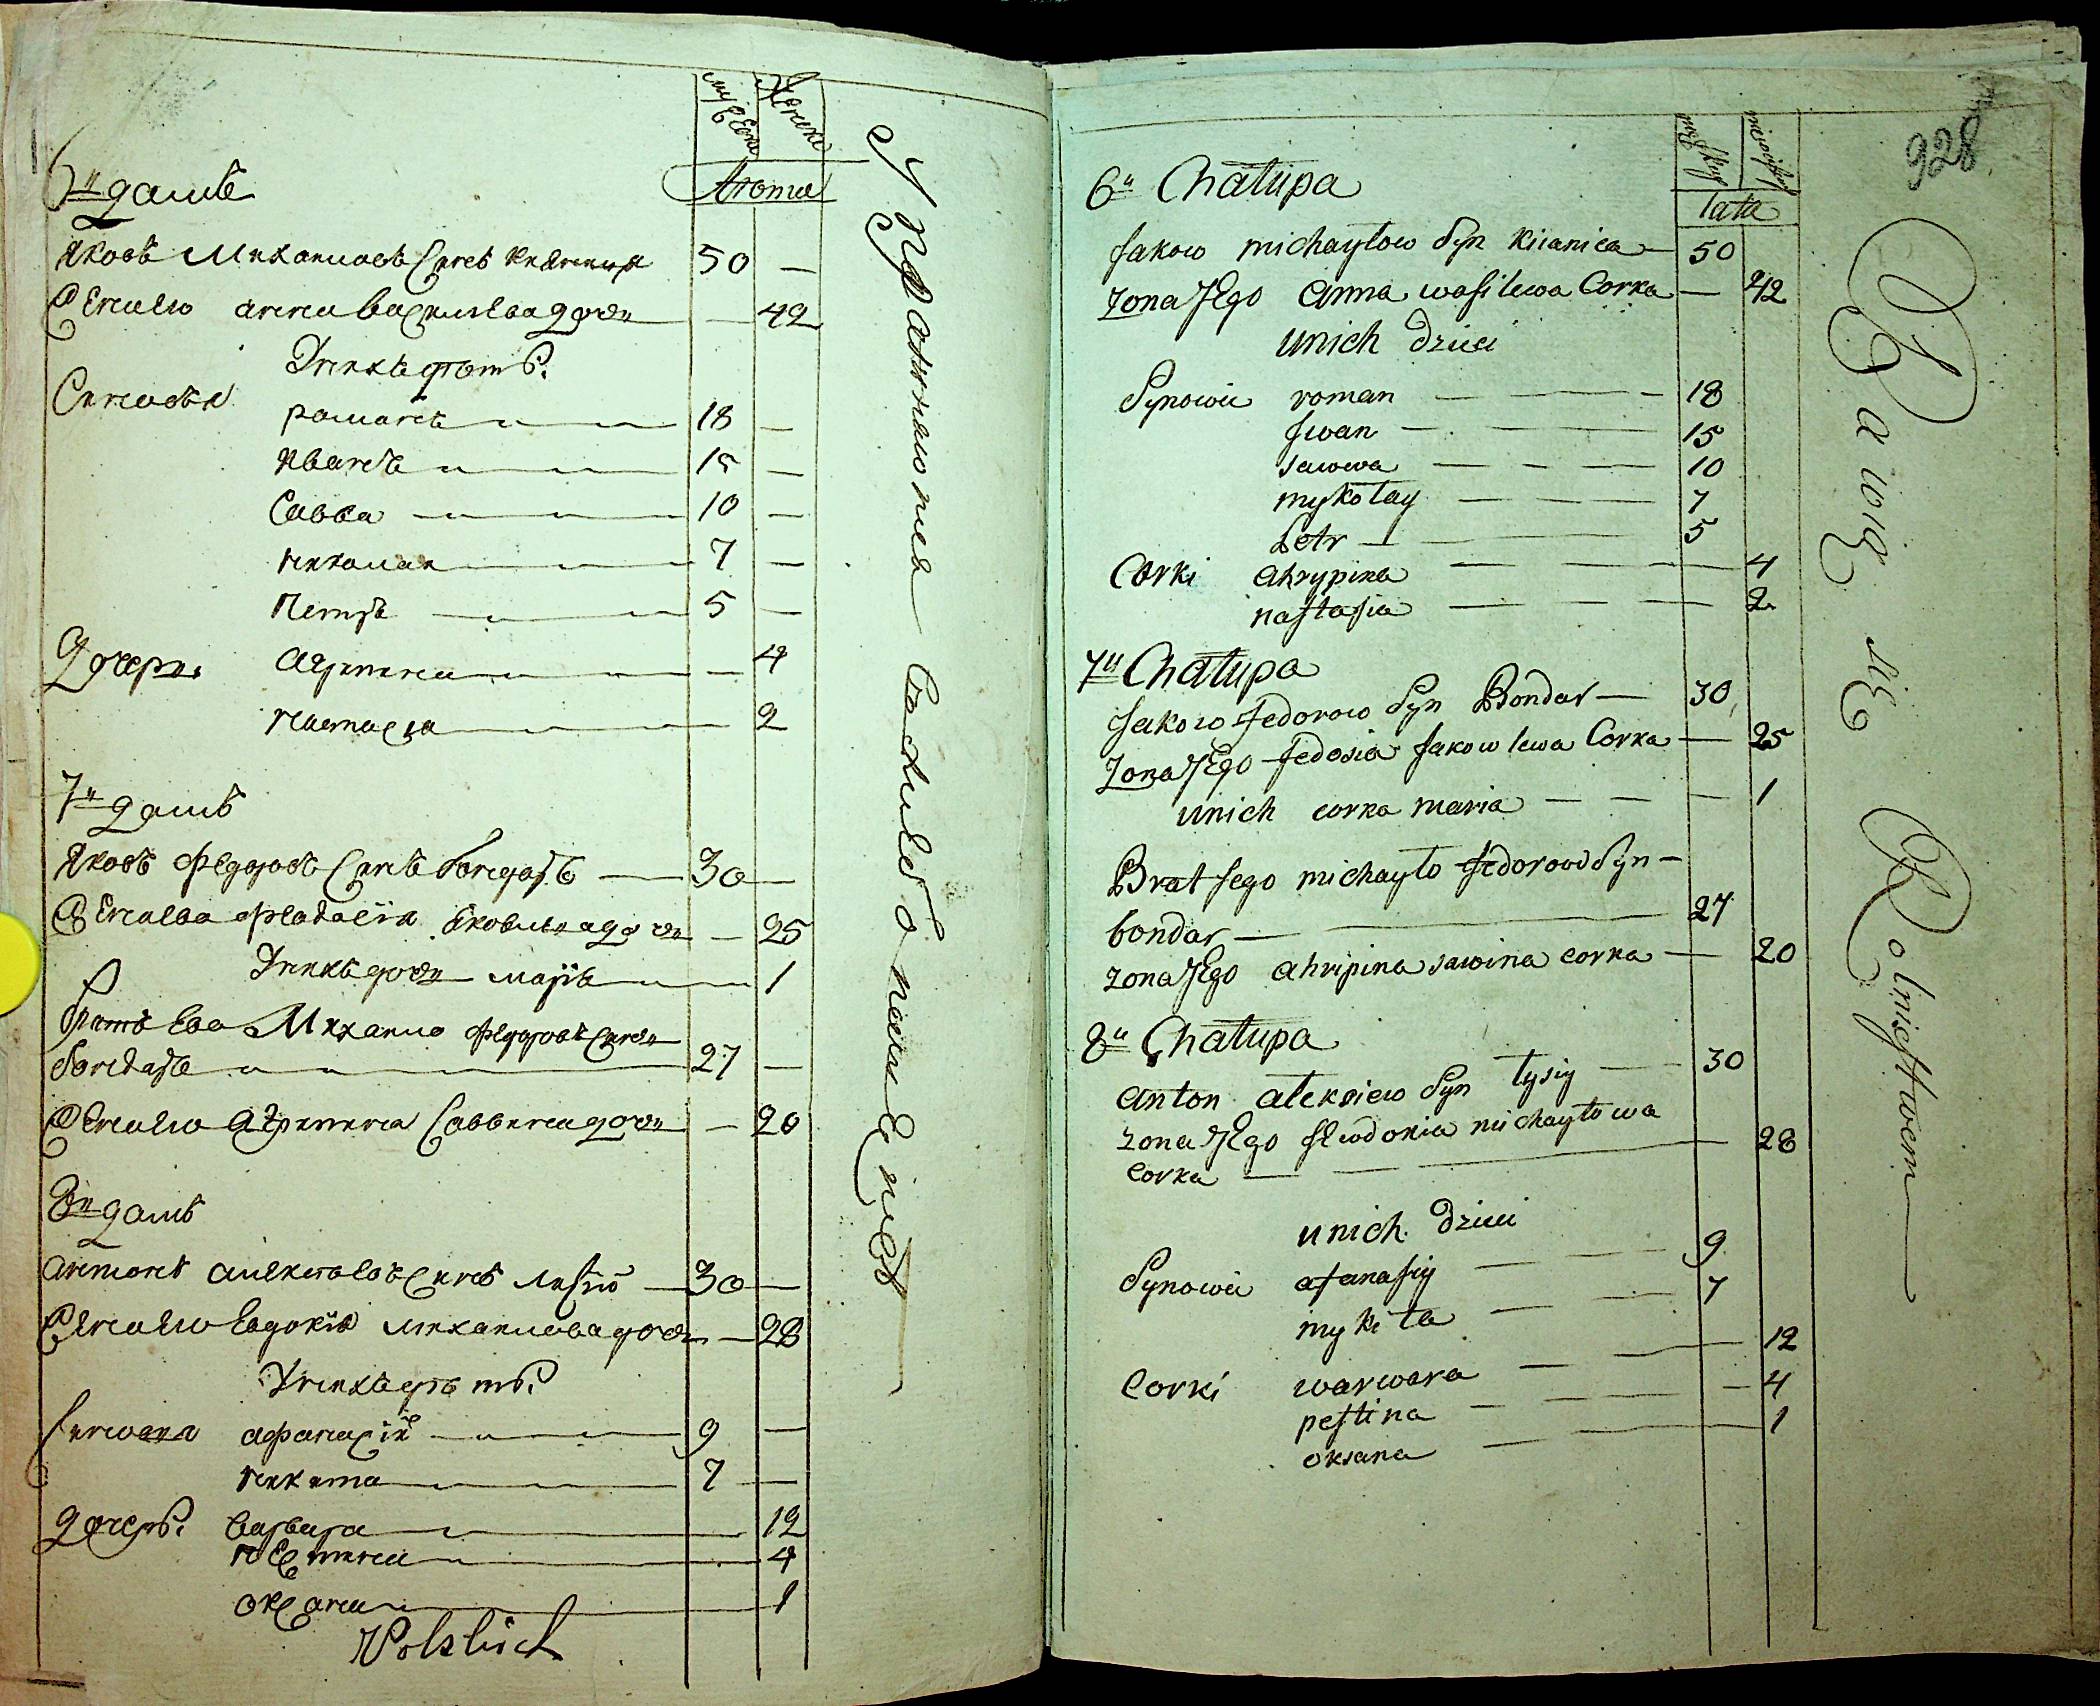 мужеска
Женска
Лѣта
6й домъ
Яковъ Михаиловъ Сынъ Княница 50 —
Жена ево анна василева дочь — 42
У нихъ дѣти
Сыновья
романъ 18 —
иванъ 15 —
Савва 10 —
николаи 7 —
петръ 5 —
дочери агрипина — 4
настасия 2
7й домъ
Яковъ Федоровъ Сынъ бондаръ 30 —
Жена ево феодосия яковлева дочь — 25
У нихъ дочь марія 1
братъ ево Михаило Федоровъ Сынъ
бондаръ 27 —
Жена ево агрипина Саввина дочь — 20
8й домъ
антонъ алексѣевъ Сынъ лисiй 30 —
Жена ево Евдокия михаилова дочь — 28
У нихъ дѣти
Сыновья афанасiй 9 —
никита 7 —
дочери варвара 12
пестина 4
оксана 1
Упражняются
хлебопашествомъ
928
męskiey
niewieściey
lata
6a Chałupa
Jakow michayłow Syn Kiianica — 50
zona JEgo anna wasilewa Corka — 42
unich dzieci
Synowie roman — 18
Jwan — 15
sawwa — 10
mykołay — 7
Petr — 5
Corki ahrypina — 4
nastasia — 2
7a Chałupa
Jakow fedorow Syn Bondar — 30
zona JEgo fedosia Jakowlewa Corka — 25
unich corka maria — 1
Brat Jego michayło fedorow Syn —
bondar — 27
zona JEgo ahripina sawina corka — 20
8a Chałupa
anton alexiew Syn łysiy — 30
zona JEgo Jewdokia michayłowa
corka — 28
unich dzieci
Synowie afanasiy — 9
mykita — 7
Corki warwara — 12
pestina — 4
oksana — 1
Bawią się Rolnictwem